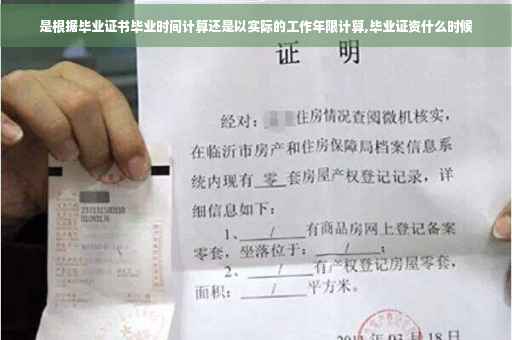 是根据毕业证书毕业时间计算还是以实际的工作年限计算,毕业证资什么时候
证 明
经对：住房情况查阅微机核实，
在临沂市房产和住房保障局档案信息系
统内现有 零 套房屋产权登记记录，详
细信息如下：
1、 / 有商品房网上登记备案
零套，坐落位于： / ；
2、 / 有产权登记房屋零套，
面积： / 平方米。
03月18日